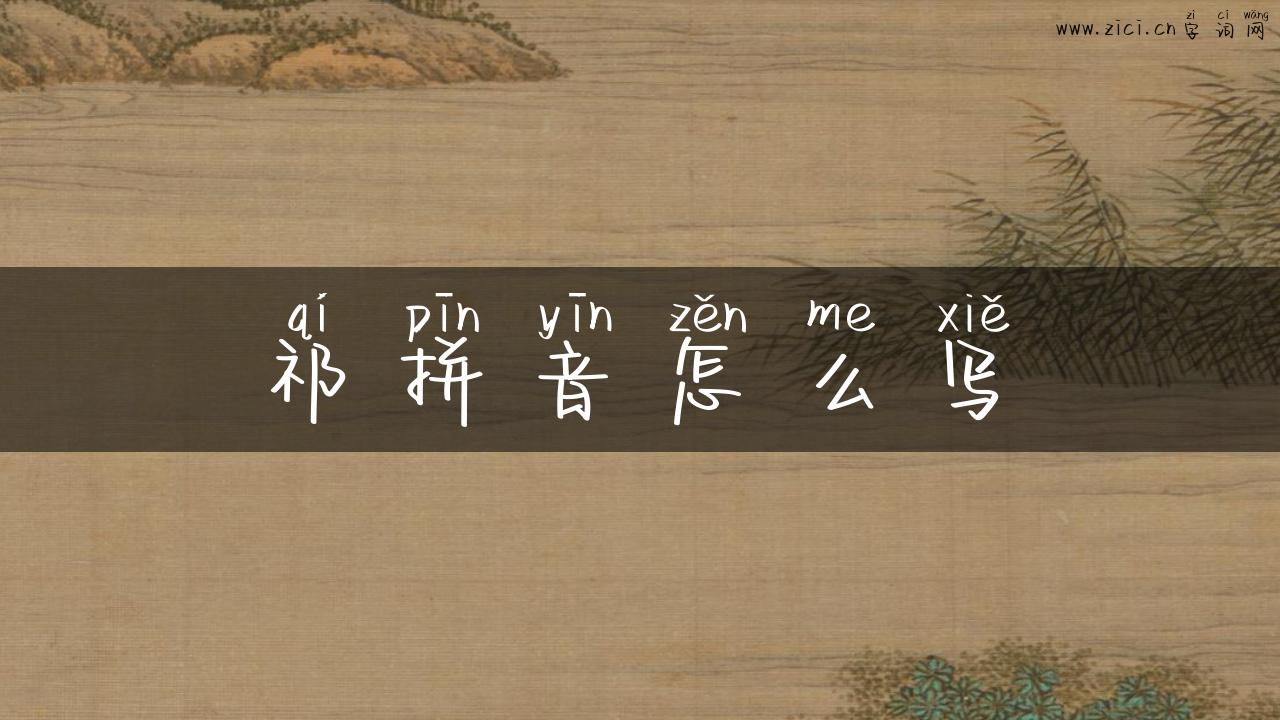 zì cí wǎng
www.zici.cn字词网
qí pīn yīn zěn me xiě
祁拼音怎么写